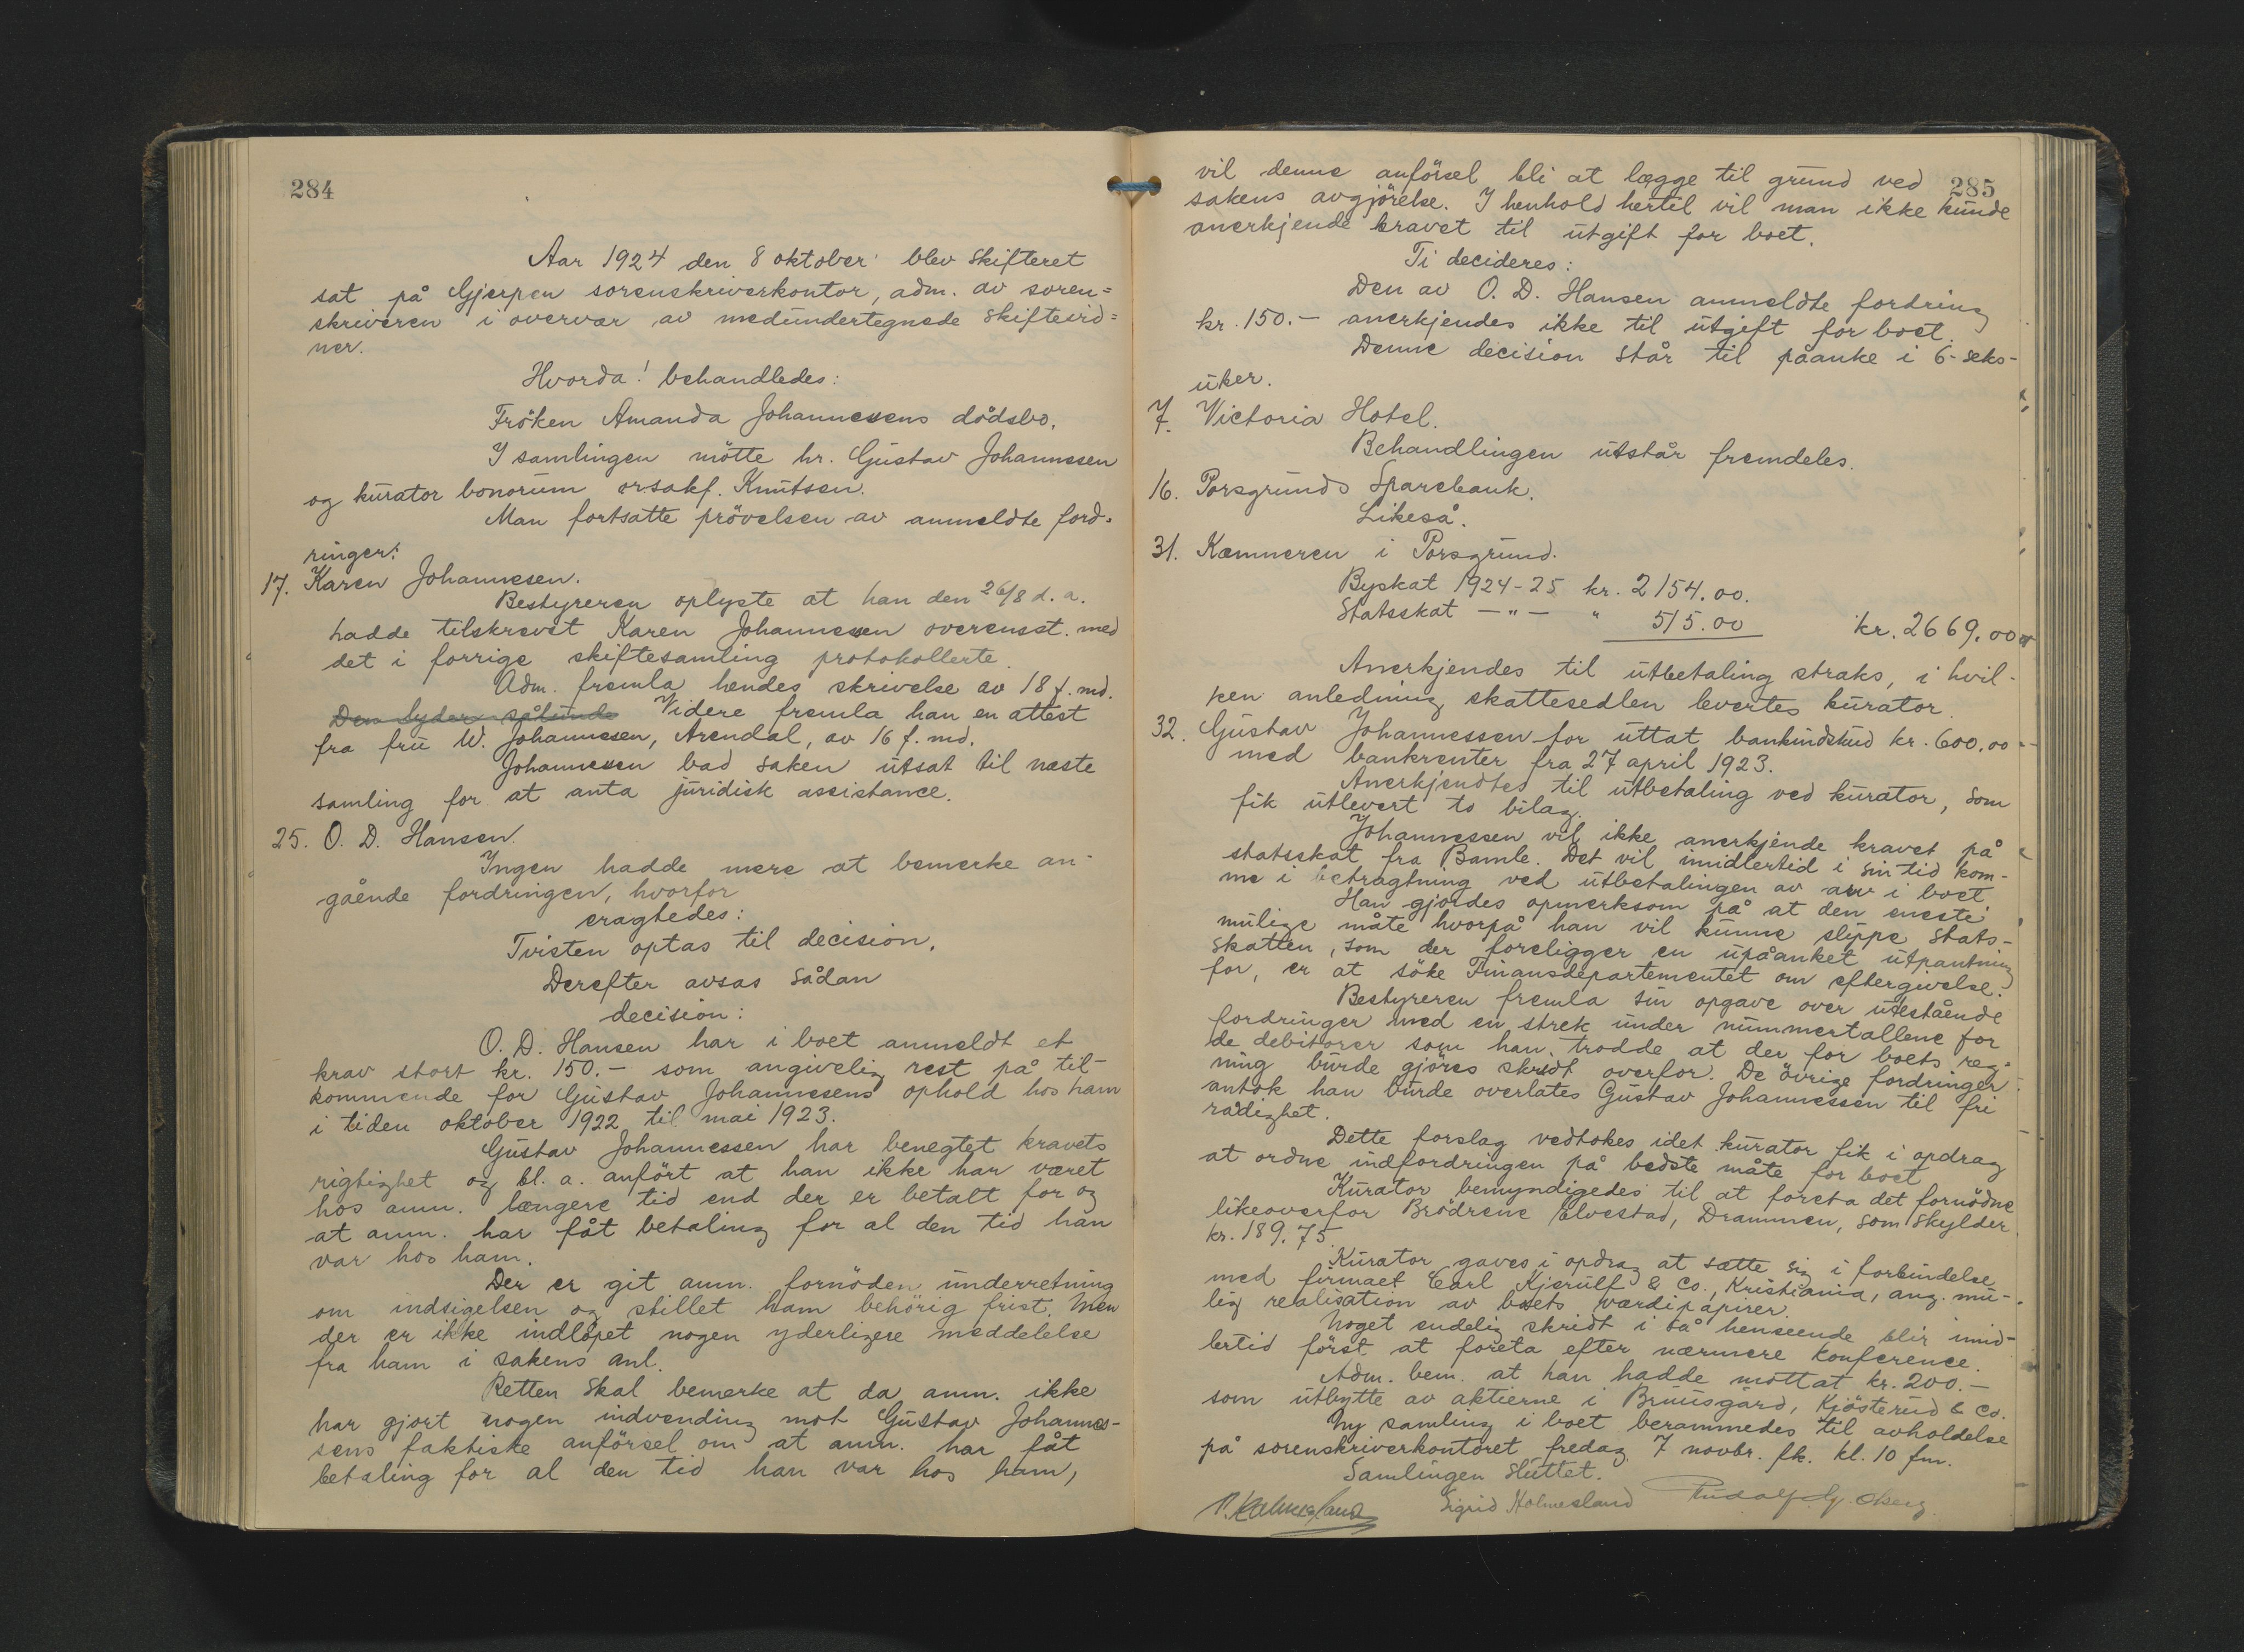 284
Aar 1924 den 8 oktober blev skifteret
sat på Gjerpen sorenskriverkontor, adm. av soren=
skriveren i overvær av medundertegnede skiftevid=
ner.
Hvorda! behandledes:
Fröken Amanda Johannesens dödsbo.
I samlingen mötte hr. Gustav Johannesen
og kurator bonorum orsakf. Knutsen.
Man fortsatte prövelsen av anmeldte ford=
ringer:
17. Karen Johannesen.
Bestyreren oplyste at han den 26/8 d. a.
hadde tilskrevet Karen Johannesen overensst. med
det i forrige skiftesamling protokollerte.
Adm. fremla hendes skrivelse av 18 f. md.
Den lyder sålunde Videre fremla han en attest
fra fru W. Johannesen, Arendal, av 16 f. md.
Johannesen bad saken utsat til næste
samling for at anta juridisk assistance.
25. O. D. Hansen.
Ingen hadde mere at bemerke an-
gående fordringen, hvorfor
eragtedes:
Tvisten optas til decision.
Derefter avsas sådan
decision:
O. D. Hansen har i boet anmeldt et
krav stort kr. 150.- som angivelig rest på til-
kommende for Gustav Johannesens ophold hos ham
i tiden oktober 1922 til mai 1923.
Gustav Johannessen har benegtet kravets
rigtighet og bl. a. anfört at han ikke har været
hos anm. længere tid end der er betalt for og
at anm. har fåt betaling for al den tid han
var hos ham.
Der er git anm. fornöden underretning
om indsigelsen og stillet ham behörig frist. Men
der er ikke indlöpet nogen yderligere meddelelse
fra ham i sakens anl.
Retten skal bemerke at da anm. ikke
har gjort nogen indvending mot Gustav Johannes-
sens faktiske anförsel om at anm. har fåt
betaling for al den tid han var hos ham,
285
vil denne anförsel bli at lægge til grund ved
sakens avgjörelse. I henhold hertil vil man ikke kunde
anerkjende kravet til utgift for boet.
Ti decideres:
Den av O. D. Hansen anmeldte fordring
kr. 150.- anerkjendes ikke til utgift for boet.
Denne decision står til påanke i 6-seks-
uker.
7. Victoria Hotel.
Behandlingen utstår fremdeles.
16. Porsgrunds Sparebank.
Likeså.
31. Kæmneren i Porsgrund.
Byskat 1924-25 kr. 2154.00.
Statsskat — " — " 515.00 kr. 2669.00
Anerkjendes til utbetaling straks, i hvil-
ken anledning skattesedlen levertes kurator.
32. Gustav Johannessen for uttat bankindskud kr. 600.00
med bankrenter fra 27 april 1923.
Anerkjendtes til utbetaling ved kurator, som
fik utlevert to bilag.
Johannessen vil ikke anerkjende kravet på
statsskat fra Bamle. Det vil imidlertid i sin tid kom-
me i betragtning ved utbetalingen av arv i boet.
Han gjordes opmerksom på at den eneste
mulige måte hvorpå han vil kunne slippe stats-
skatten, som der foreligger en upåanket utpantning
for, er at söke Finansdepartementet om eftergivelse.
Bestyreren fremla sin opgave over utestående
fordringer med en strek under nummertallene for
de debitorer som han trodde at der for boets reg-
ning burde gjöres skridt overfor. De övrige fordringer
antok han burde overlates Gustav Johannessen til fri
rådighet.
Dette forslag vedtokes idet kurator fik i opdrag
at ordne indfordringen på bedste måte for boet.
Kurator bemyndigedes til at foreta det fornödne
likeoverfor Brödrene Elvestad, Drammen, som skylder
kr. 189.75.
Kurator gaves i opdrag at sætte sig i forbindelse
med firmaet Carl Kjerulf & Co., Kristiania, ang. mu-
lig realisation av boets værdipapirer.
Noget endelig skridt i så henseende blir imid-
lertid först at foreta efter nærmere konference.
Adm. bem. at han hadde mottat kr. 200.-
som utbytte av aktierne i Bruusgård, Kjösterud & Co.
Ny samling i boet berammedes til avholdelse
på sorenskriverkontoret fredag 7 novbr. fk. kl. 10 fm.
Samlingen sluttet.
Sigrid Holmesland